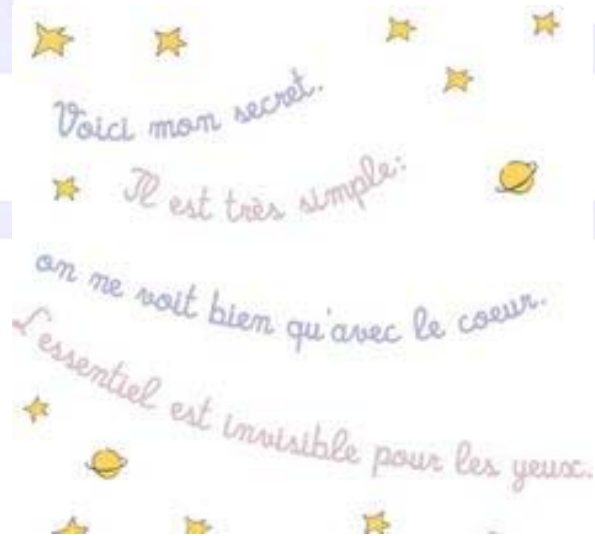 Voici mon secret.
Il est très simple:
on ne voit bien qu'avec le coeur.
L'essentiel est invisible pour les yeux.